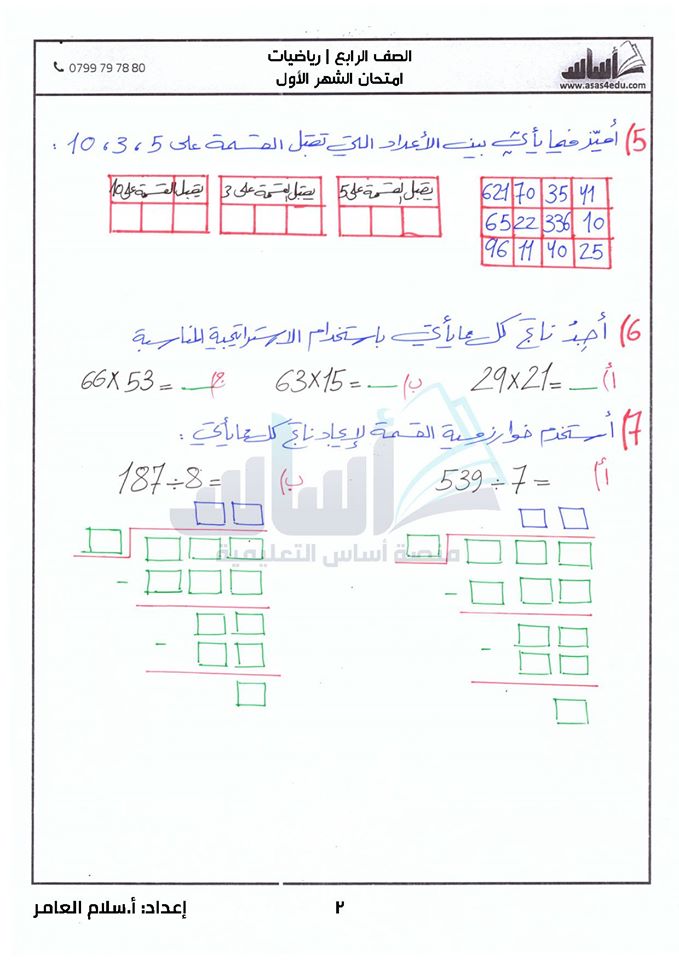 الصف الرابع | رياضيات
امتحان الشهر الأول
0799 79 78 80
أساس
www.asas4edu.com
5) أميّز فيما يأتي بين الأعداد التي تقبل القسمة على 5 ، 3 ، 10 :
621 70 35 41
65 22 336 10
96 11 40 25
يقبل القسمة على 5
يقبل القسمة على 3
يقبل القسمة على 10
6) أجِدُ ناتج كل مما يأتي باستخدام الاستراتيجية المناسبة
أ) 29×21= __
ب) 63×15= __
ج) 66×53= __
7) أستخدم خوارزمية القسمة لإيجاد ناتج كل مما يأتي :
أ) 539÷7=
ب) 187÷8=
أساس
منصة أساس التعليمية
إعداد: أ.سلام العامر
٢